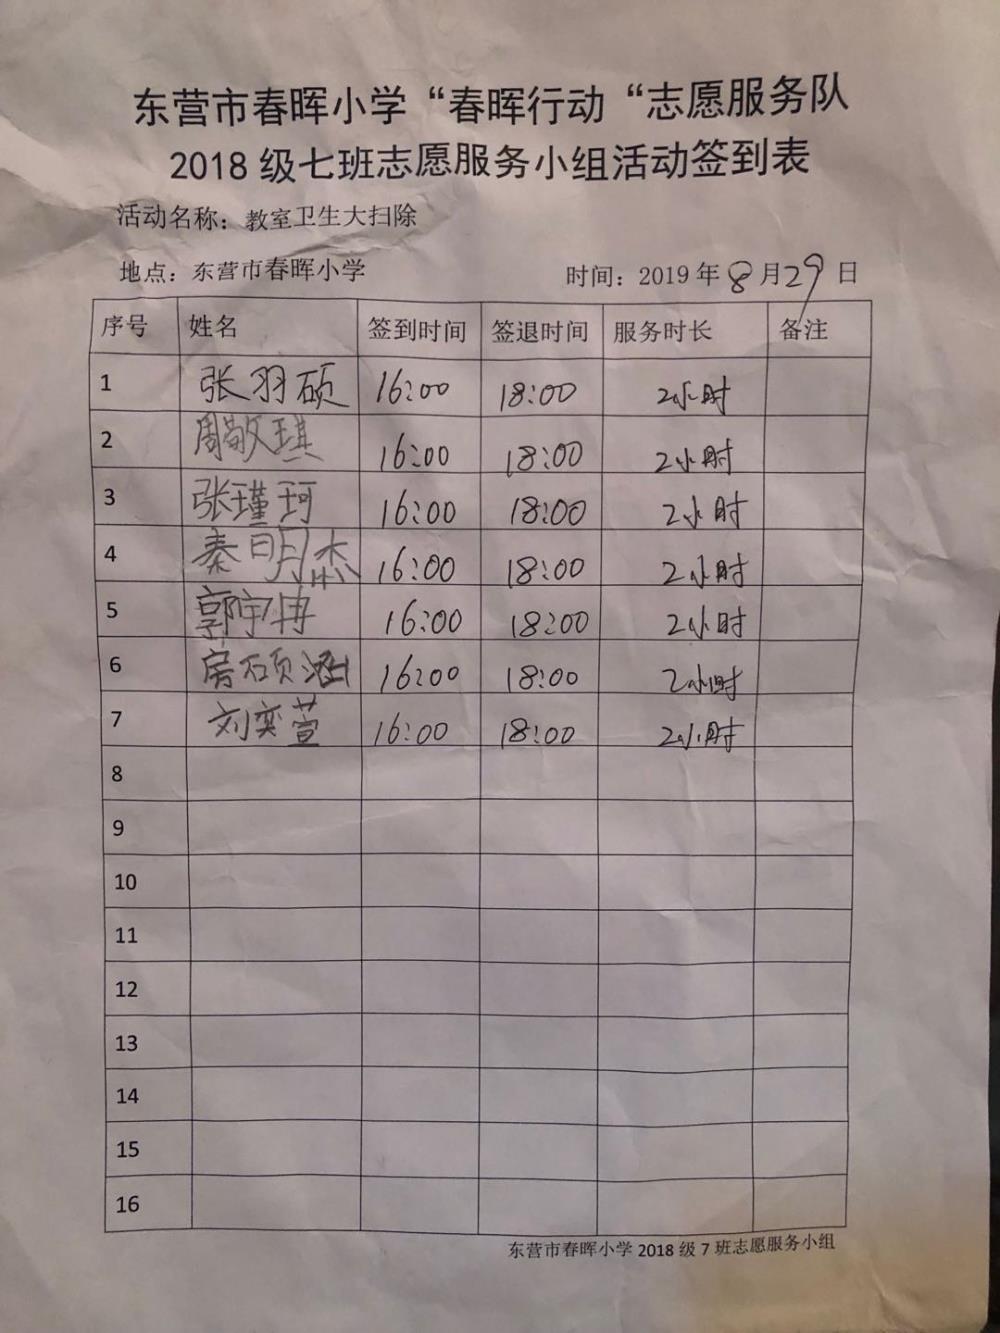 东营市春晖小学“春晖行动“志愿服务队
2018 级七班志愿服务小组活动签到表
活动名称：教室卫生大扫除
地点：东营市春晖小学 时间：2019 年 8 月 29 日
序号 姓名 签到时间 签退时间 服务时长 备注
1 张羽硕 16:00 18:00 2小时
2 周敬琪 16:00 18:00 2小时
3 张瑾珂 16:00 18:00 2小时
4 秦明杰 16:00 18:00 2小时
5 郭宇冉 16:00 18:00 2小时
6 房硕涵 16:00 18:00 2小时
7 刘奕萱 16:00 18:00 2小时
8
9
10
11
12
13
14
15
16
东营市春晖小学 2018 级 7 班志愿服务小组